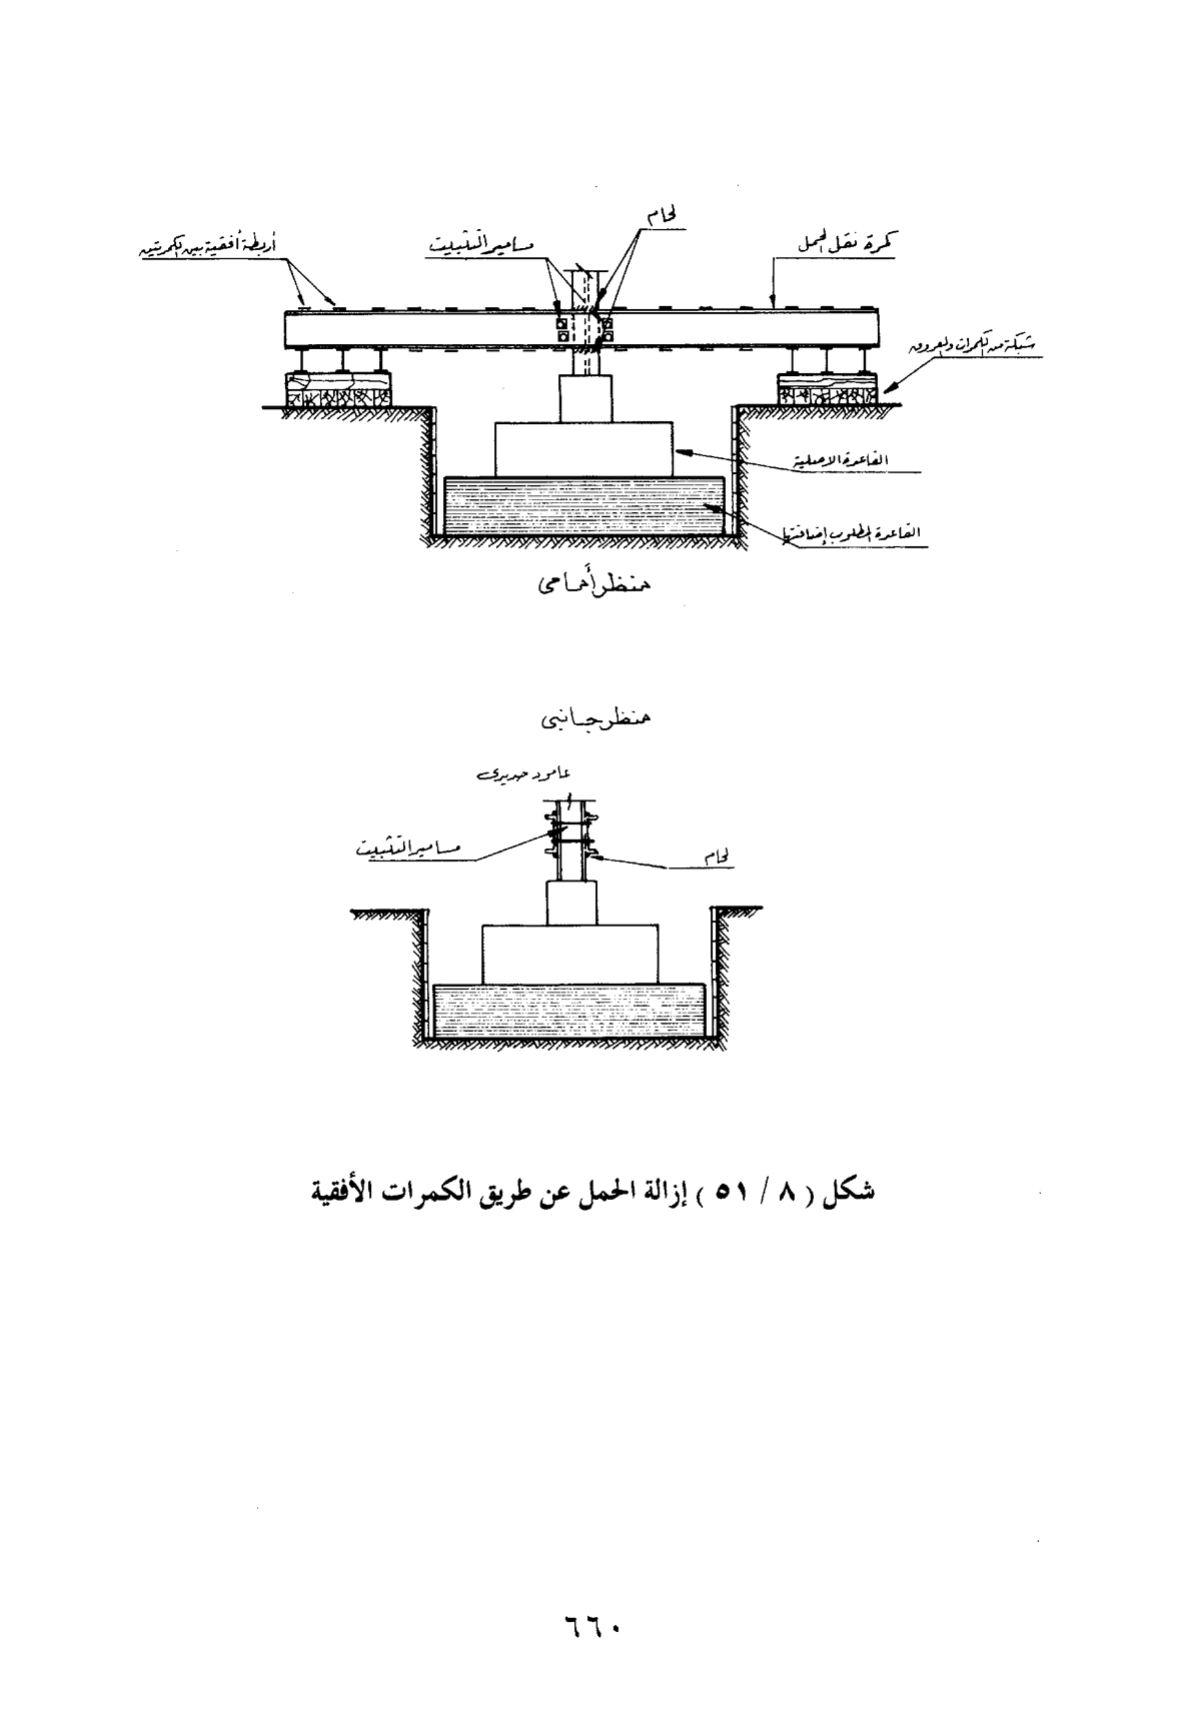 لحام
كمرة نقل الحمل
مسامير التثبيت
أربطة أفقية بين الكمرتين
شبكة من الكمرات والعروق
القاعدة الاصلية
القاعدة المطلوب إضافتها
منظر أمامى
منظر جانبى
عامود حديدى
مسامير التثبيت
لحام
شكل ( ٨ / ٥١ ) إزالة الحمل عن طريق الكمرات الأفقية
٦٦٠